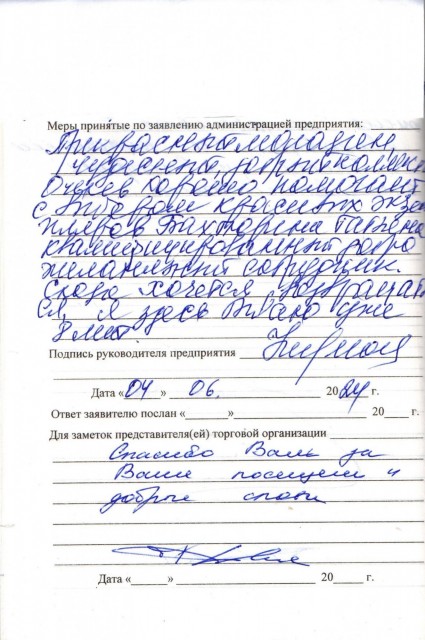 Меры принятые по заявлению администрацией предприятия:
Прекрасный магазин,
чудесный, добрый
Очень хорошо помогают
с выбором красивых
Татьяна
квалифицированный добро
желательный сотрудник.
Сюда хочется возвращат
ся. Я здесь бываю уже
8 лет.
Подпись руководителя предприятия
Дата «04» 06. 2024 г.
Ответ заявителю послан «______» ______ 20____ г.
Для заметок представителя(ей) торговой организации
Спасибо Вам за
Ваше посещение и
добрые слова
Дата «______» ______ 20____ г.